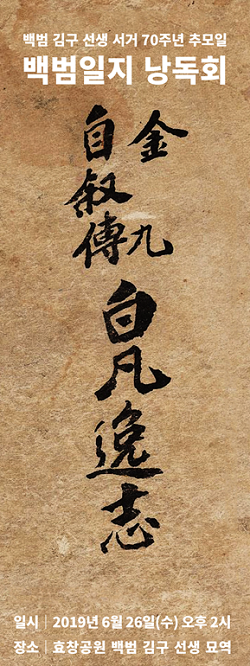 백범 김구 선생 서거 70주년 추모일
백범일지 낭독회
金九
自叙傳
白凡逸志
일시 | 2019년 6월 26일(수) 오후 2시
장소 | 효창공원 백범 김구 선생 묘역